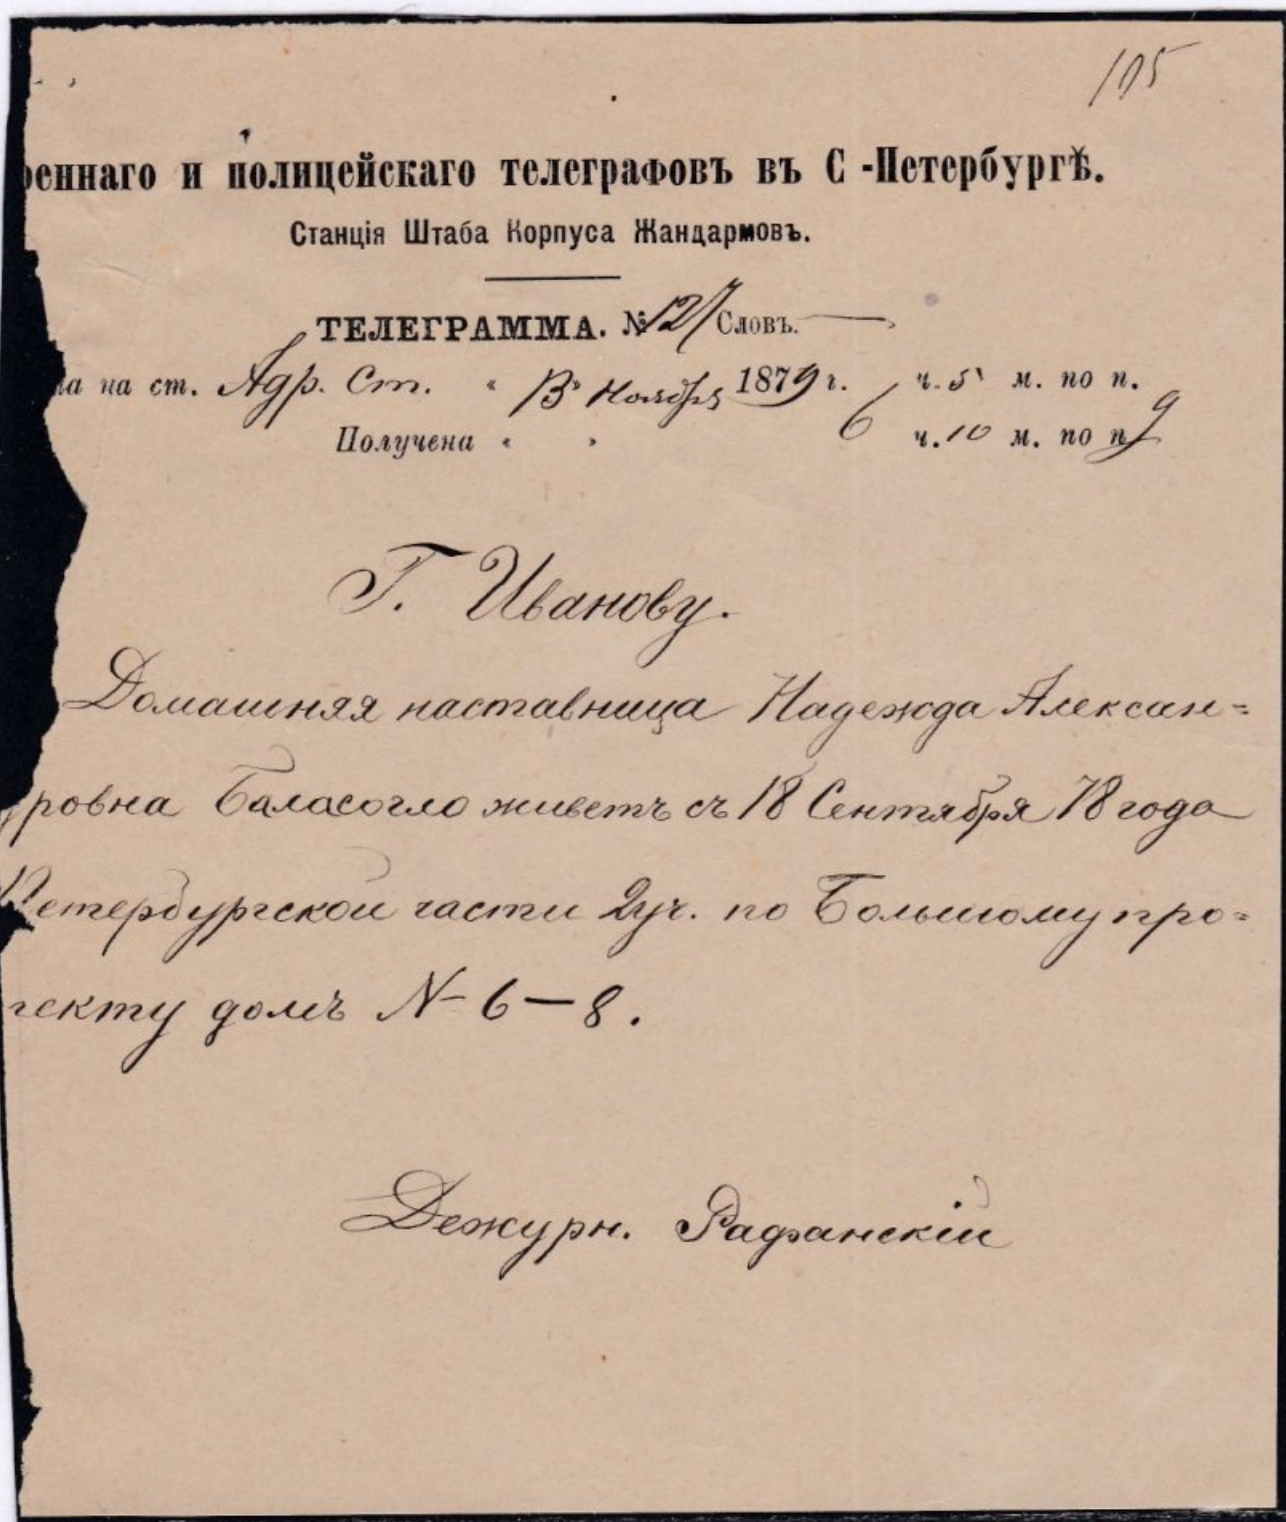 105
реннаго и полицейскаго телеграфовъ въ С-Петербургѣ.
Станція Штаба Корпуса Жандармовъ.
ТЕЛЕГРАММА. № 127 Словъ. —
на на ст. Адр. Ст. « 13 » Ноября 1879 г. ч. 5 м. по п.
Получена « » 6 ч. 10 м. по п. 9
Г. Иванову.
Домашняя наставница Надежда Алексан=
дровна Баласогло живетъ съ 18 Сентября 78 года
Петербургской части 2 уч. по Большому про=
спекту домъ N– 6–8.
Дежурн.